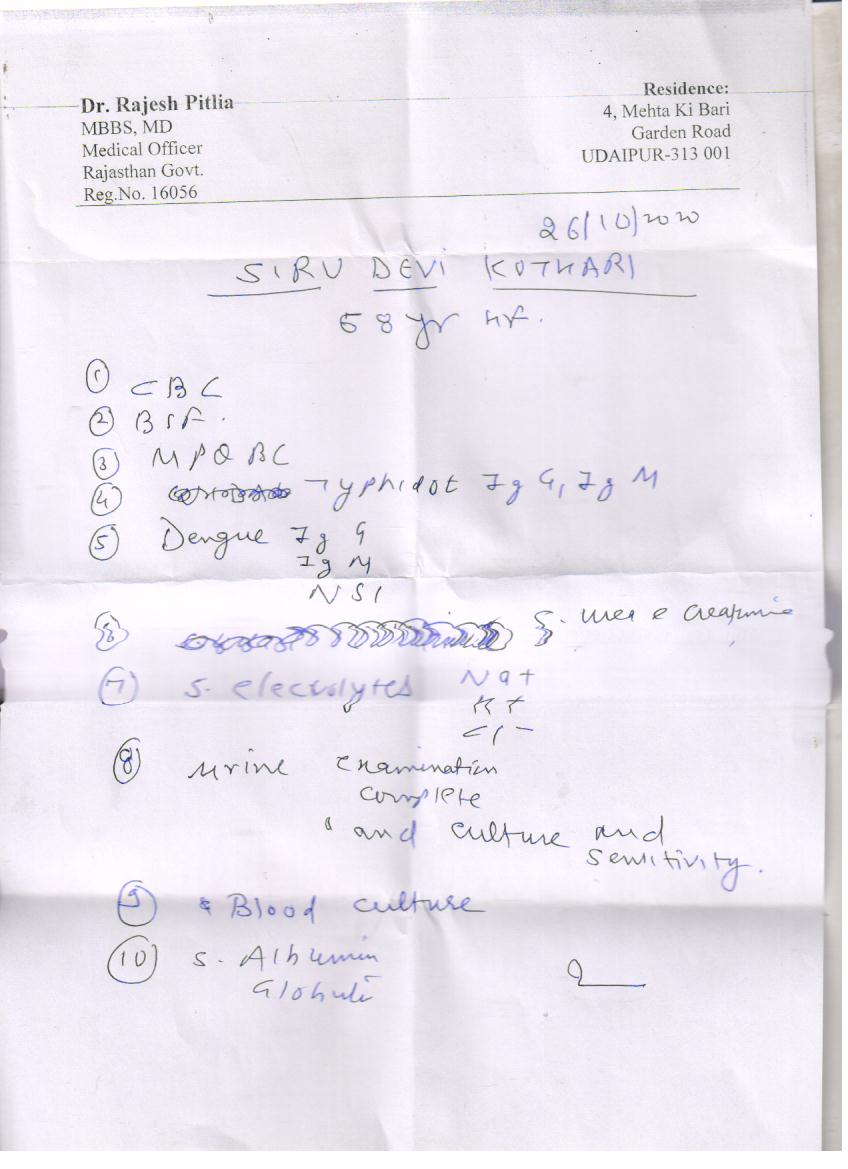 Dr. Rajesh Pitlia
MBBS, MD
Medical Officer
Rajasthan Govt.
Reg.No. 16056
Residence:
4, Mehta Ki Bari
Garden Road
UDAIPUR-313 001
26/10/2020
SIRU DEVI KOTHARI
68 yr
① CBC
②
③ MPQBC
④ Typhidot Ig G, Ig M
⑤ Dengue Ig G
Ig M
NS1
⑥ S.
⑦ S. electrolytes Na+
K+
Cl-
⑧ urine Examination
complete
and culture and
sensitivity.
⑨ Blood culture
⑩ S. Albumin